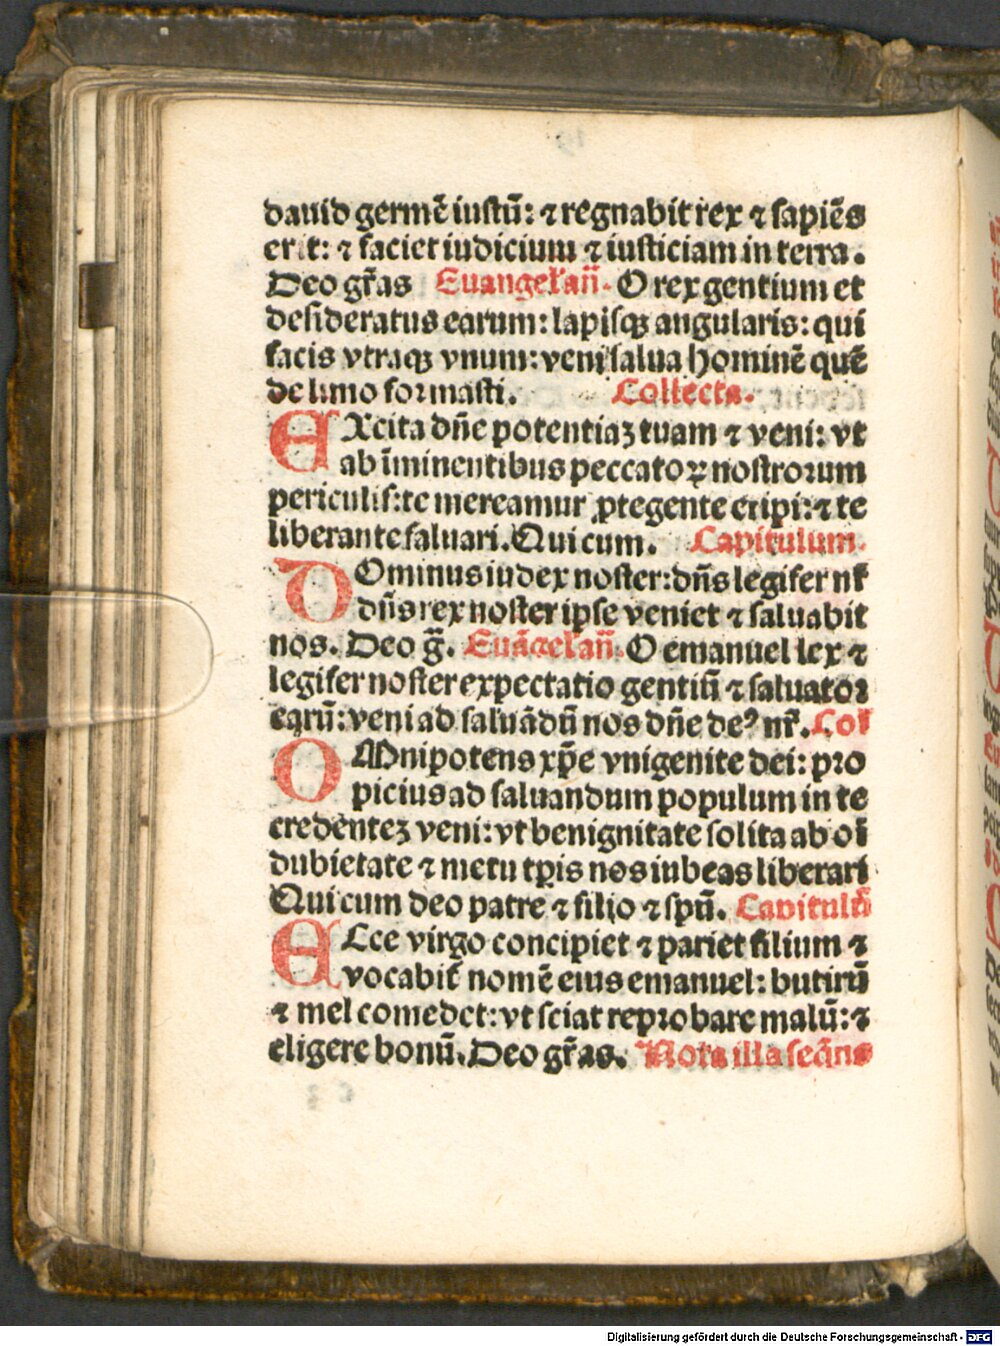 dauid germē iustū: ⁊ regnabit rex ⁊ sapiēs
erit: ⁊ faciet iudicium ⁊ iusticiam in terra.
Deo gr̄as Euangel̄ an̄. O rex gentium et
desideratus earum: lapisqꝫ angularis: qui
facis vtraqꝫ vnum: veni salua hominē quē
de limo formasti. Collecta.
EXcita dn̄e potentiaꝫ tuam ⁊ veni: vt
ab īminentibus peccatoꝝ nostrorum
periculis: te mereamur ꝓtegente eripi: ⁊ te
liberante saluari. Qui cum. Capitulum.
DOminus iudex noster: dn̄s legifer nr̄
dn̄s rex noster ipse veniet ⁊ saluabit
nos. Deo ḡ. Euāgel̄ an̄. O emanuel lex ⁊
legifer noster expectatio gentiū ⁊ saluator
earū: veni ad saluādū nos dn̄e deꝰ nr̄. Col̄
OMnipotens xp̄e vnigenite dei: pro
picius ad saluandum populum in te
credenteꝫ veni: vt benignitate solita ab oī
dubietate ⁊ metu tp̄is nos iubeas liberari
Qui cum deo patre ⁊ filio ⁊ spū. Capitulū
ECce virgo concipiet ⁊ pariet filium ⁊
vocabit̄ nomē eius emanuel: butirū
⁊ mel comedet: vt sciat reprobare malū: ⁊
eligere bonū. Deo gr̄as. Nota illa seq̄ns
Digitalisierung gefördert durch die Deutsche Forschungsgemeinschaft - DFG